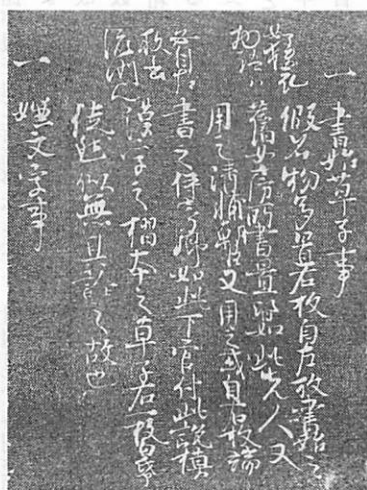 一 書始草子事
假名物多置右枚自左枚書始之
舊女房所書置皆如此先人又
用之清輔朝臣又用之或自右枚端
書之伊房卿如此下官付此説模
漢字之摺本之草子右一枚
徒似無其詮之故也
一 嫌文字事